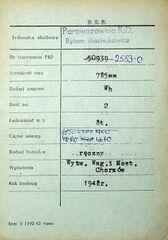 P. K. P.
Jednostka służbowa
Parowozownia K.D.
Bytom-Maciejkowice
Nr inwentarza PKP
50939-2553-0
Szerokość toru
785mm
Rodzaj wagonu
Wh
Ilość osi
2
Ładowność w t.
8t.
Ciężar własny
Rodzaj hamulca
ręczny
Wytwórnia
Wytw. Wag. i Most.
Chorzów
Rok budowy
1948r.